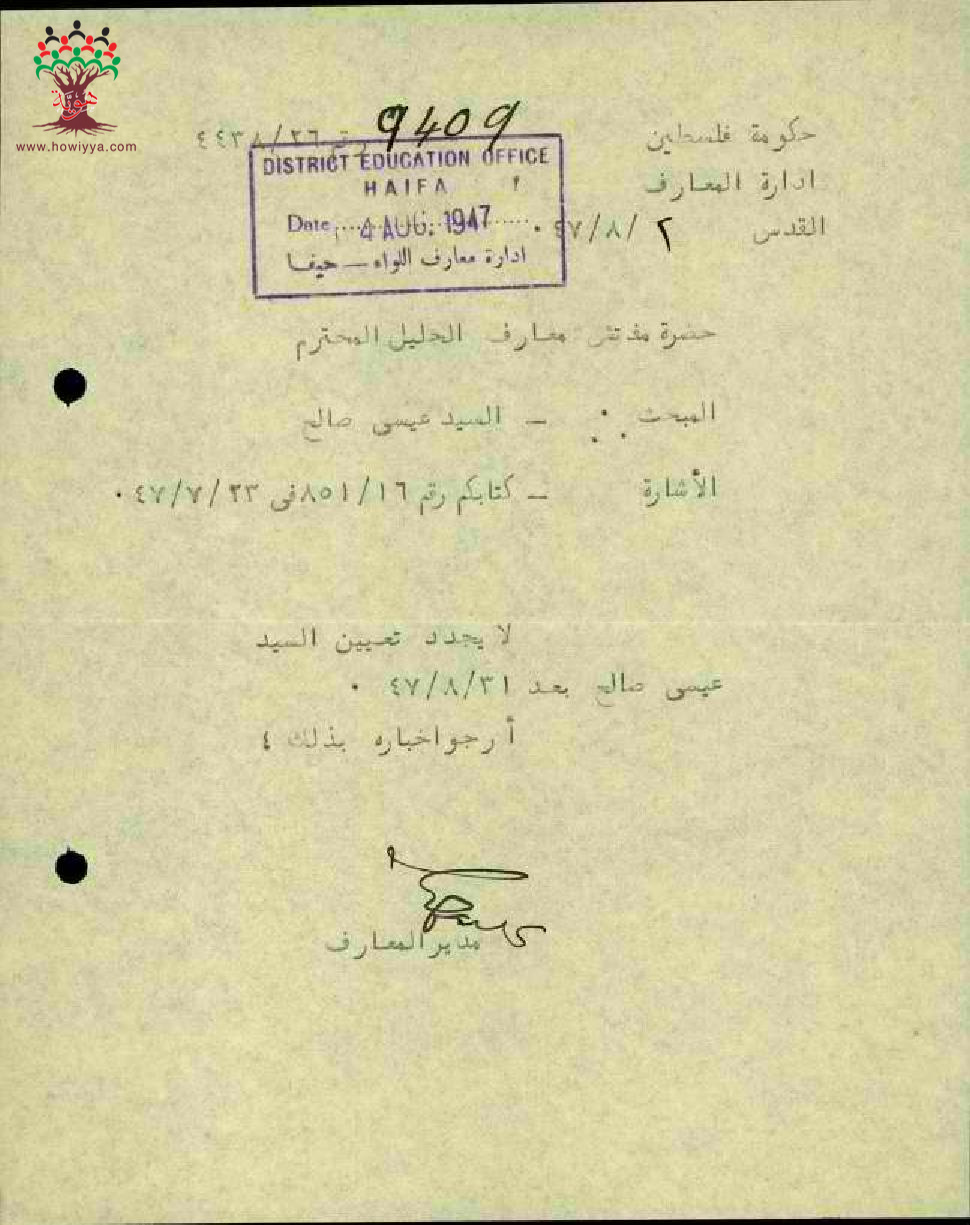 هوية
www.howiyya.com
9409
حكومة فلسطين رقم ٤٤٣٨/٢٦
ادارة المعارف
القدس ٢/٨/٤٧ ٠
DISTRICT EDUCATION OFFICE
HAIFA
Date 4 AUG. 1947
ادارة معارف اللواء — حيفا
حضرة مفتش معارف الجليل المحترم
المبحث : – السيد عيسى صالح
الأشارة – كتابكم رقم ٨٥١/١٦ فى ٤٧/٧/٢٣ ٠
لا يجدد تعيين السيد
عيسى صالح بعد ٤٧/٨/٣١ ٠
أرجو اخباره بذلك ؛
مدير المعارف